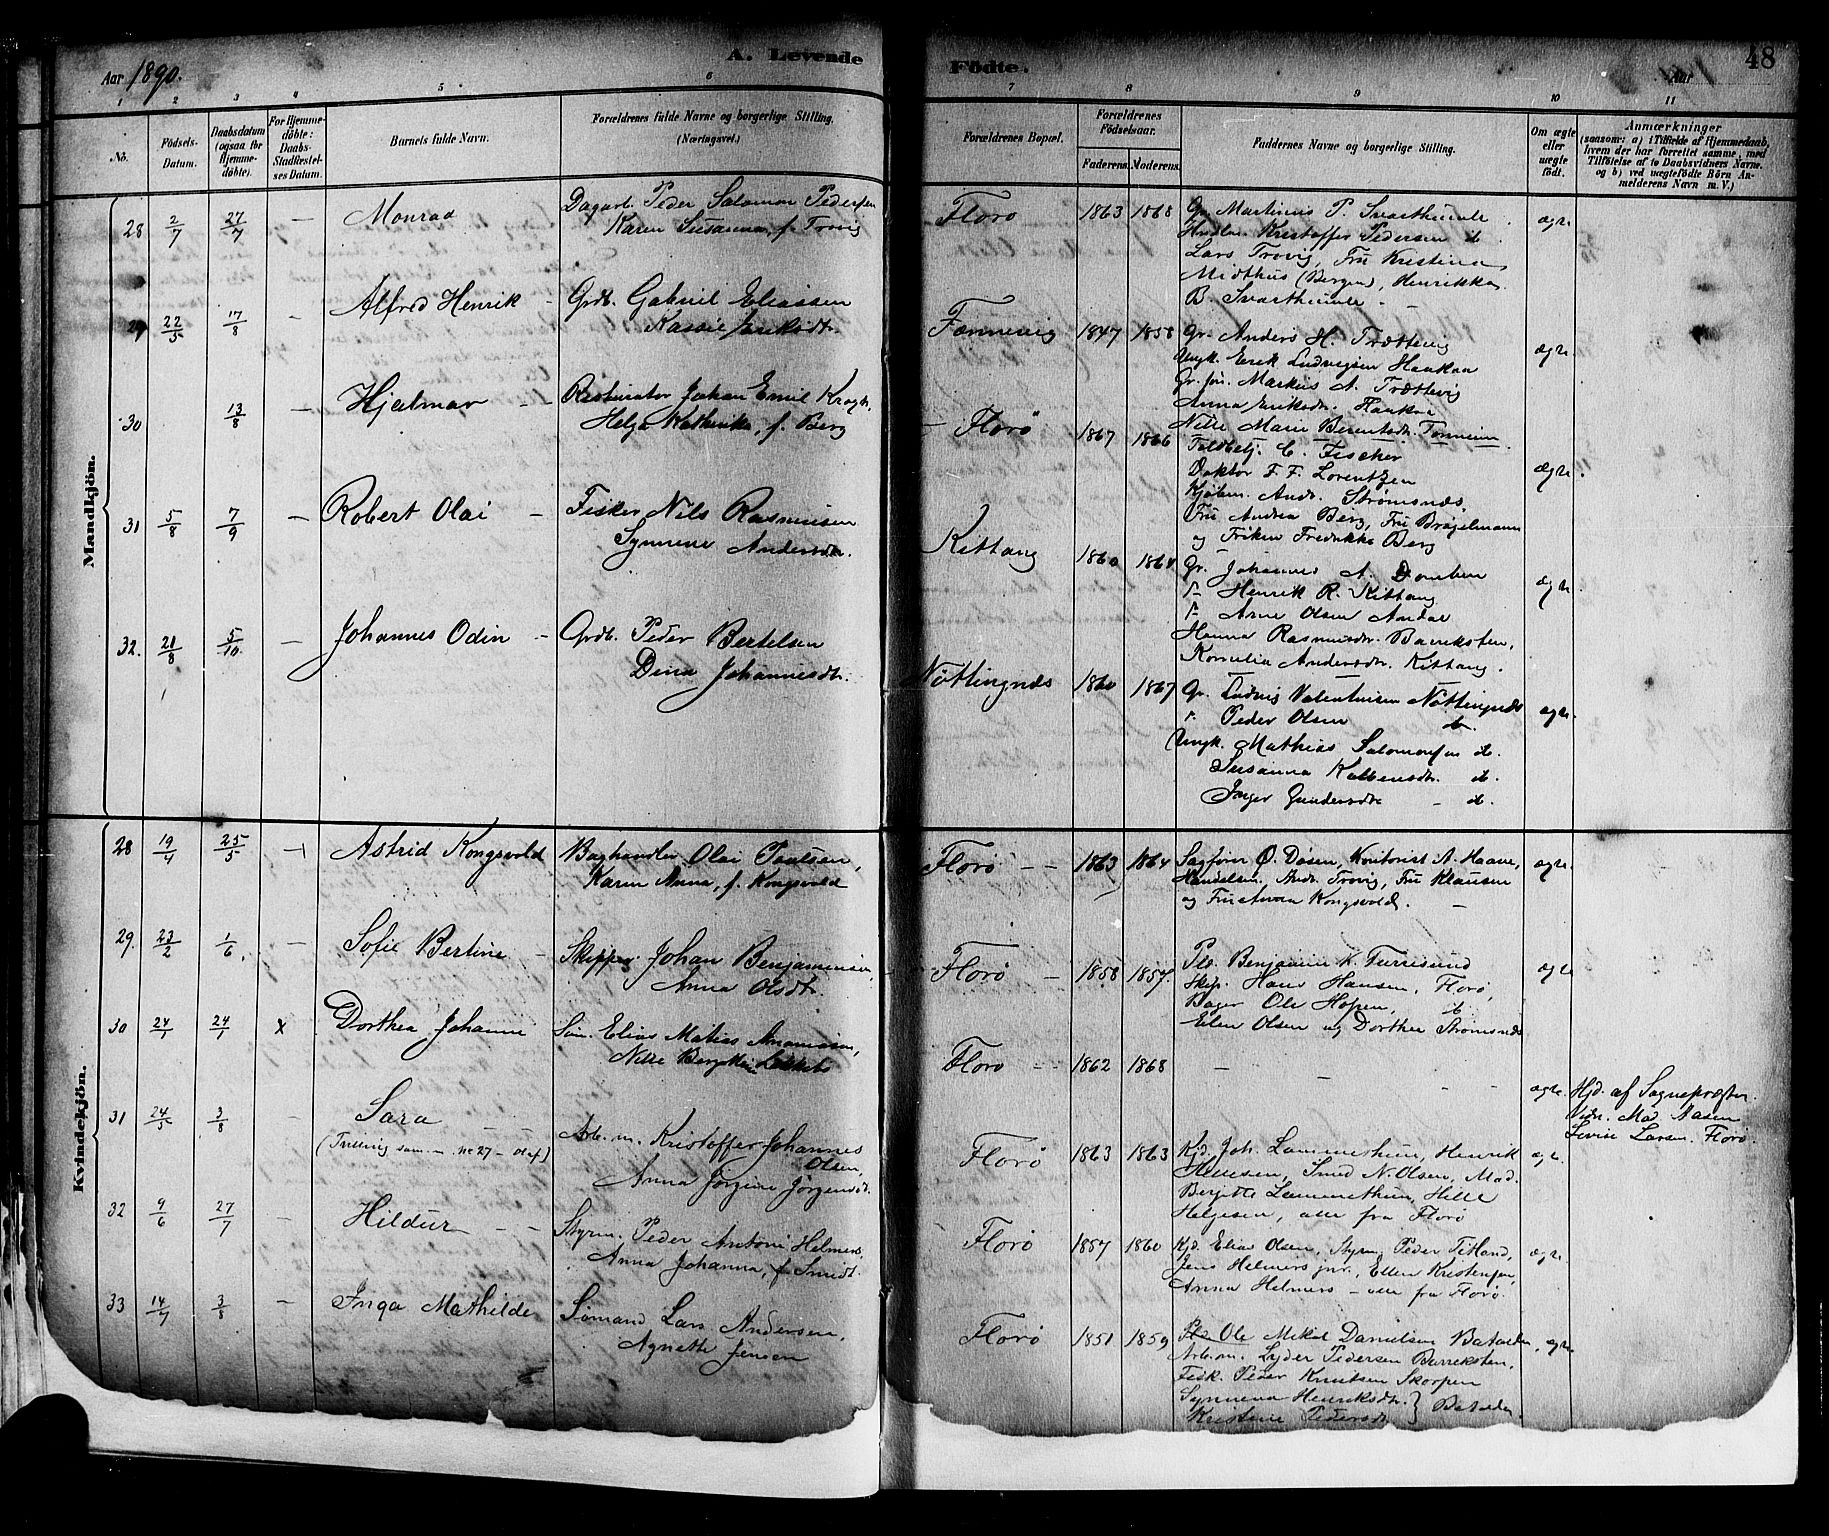 Aar 1890.
A. Levende
1 2 3 4 5 6
No.
Födsels-Datum.
Daabsdatum (ogsaa for Hjemmedöbte).
For Hjemmedöbte: Daabs-Stadfæstelses Datum.
Barnets fulde Navn.
Forældrenes fulde Navne og borgerlige Stilling.
(Næringsvei.)
Mandkjön.
28 2/7 27/7 — Monrad
Dagarb. Peder Salomon Pedersen
Karen Susanna, f. Trovig
29 22/5 17/8 — Alfred Henrik —
Grdb. Gabriel Eliassen
Kassie Eriksdt.
30 13/8 — Hjalmar — —
Johan Emil Krogh,
Helga Kathrike, f. Berg
31 5/8 7/9 — Robert Olai —
Fisker Nils Rasmussen
Synneve Andersdt.
32. 21/8 5/10 — Johannes Odin —
Grdb. Peder Bertelsen
Dina Johannesdt.
Kvindekjön.
28 19/4 25/5 Astrid Kongsvold
Boghandler Olai Paulsen,
Karen Anna, f. Kongsvold
29. 23/2 1/6. — Sofie Bertine —
Skipper Johan Benjaminsen,
Anna Olsdt.
30 24/1 24/1 x Dorthea Johanne
Søm. Elias Matias Ananiasen,
31 24/5 3/8 — Sara — —
(Trilling sam. m. No 27 — Olaf)
Arb.m. Kristoffer Johannes
Olsen,
Anna Jörgine Jörgensdt.
32 9/6 27/7 — Hildur — —
Styrm. Peder Antoni Helmers,
Anna Johanna, f. Smidt.
33 14/7 3/8 — Inga Mathilde
Sömand Lars Andersen,
Agnethe Jensen
Födte.
Aar
48
7 8 9 10 11
Forældrenes Bopæl.
Forældrenes Födselsaar.
Faderens. Moderens.
Faddernes Navne og borgerlige Stilling.
Om ægte eller uægte födt.
Anmærkninger
(saasom: a) i Tilfælde af Hjemmedaab, hvem der har forrettet samme, med Tilföielse af to Daabsvidners Navne. og b) ved uægtefödte Börn Anmelderens Navn m. V.)
Florø 1863 1868
Gr. Martinus P. Svarthumle
Handlm. Kristoffer Pedersen do.
Lars Trovig, Fru Kristina
Midthus (Bergen), Henrikka
B. Svarthumle —
ægte
1847 1858
Gr. Anders H. Trættevig
Ungk. Erik Ludvigsen Haakaa
Gr. søn. Markus A. Trættevig
Anna Eriksdt. Haakaa
Nille Marie Berentsdt.
ægte.
Florø 1867 1866
Toldbetj. C. Fischer
Doktor F. F. Lorentzen
Kjöbm. Andr. Strømsnæs,
Fru Andrea Berg, Fru Brögelmann
og Fröken Fredrikke Berg
ægte.
Kittang 1860 1864
Gr. Johannes A.
" Henrik R. Kittang
" Arne Olsen
Hanna Rasmusdt. Bareksten,
Kornelia Andersdt. Kittang.
ægte.
Nöttingnæs 1860 1867
Gr. Ludvig Valentinsen Nöttingnæs
" Peder Olsen do.
Ungk. Mathias Salomonsen do.
Susanna do.
Inger Gundersdt. — do.
ægte.
Florø — — 1863 1864
Sagfører Ø. Dösen, Kontorist A. Haave,
Handelsm. Andr. Trovig, Fru Klausen
og Fru Anna Kongsvold. —
ægte.
Florø — 1858 1857.
Pls. Benjamin K. Furresund
Skip. Hans Hansen, Florø,
Bager Ole Hopen, do.
Elen Olsen og Dorthea Strömsnæs
ægte
Florø — — 1862 1868
— — —
ægte.
Hjd. af Sognepræsten.
Vidn. Mad. Aasen
Levise Larsen. Florø.
Florø 1863 1863
Kjd. Joh. Lammethun, Henrik
Smed N. Olsen, Mad.
Bergitte Lammethun, Helle
Helgesen, alle fra Florø
ægte.
Florø 1857 1860
Kjd. Elias Olsen, Styrm. Peder Titland,
Jens Helmers jnr., Ellen Kristensen,
Anna Helmers — alle fra Florø.
ægte
Florø 1851 1859
Pls. Ole Mikal Danielsen Batalden,
Arb.m. Lyder Pedersen Barreksten,
Fisk. Peder Knutsen Skorpen
Synneva Henriksdt. }
Kristine Pedersdt. } Batalden.
ægte.